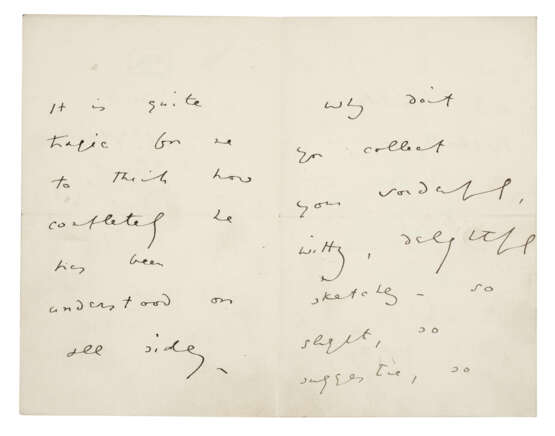 It is quite
tragic for me
to think how
completely he
has been
understood on
all sides –
Why don't
you collect
your wonderful,
witty, delightful
sketches – so
slight, so
suggestive, so